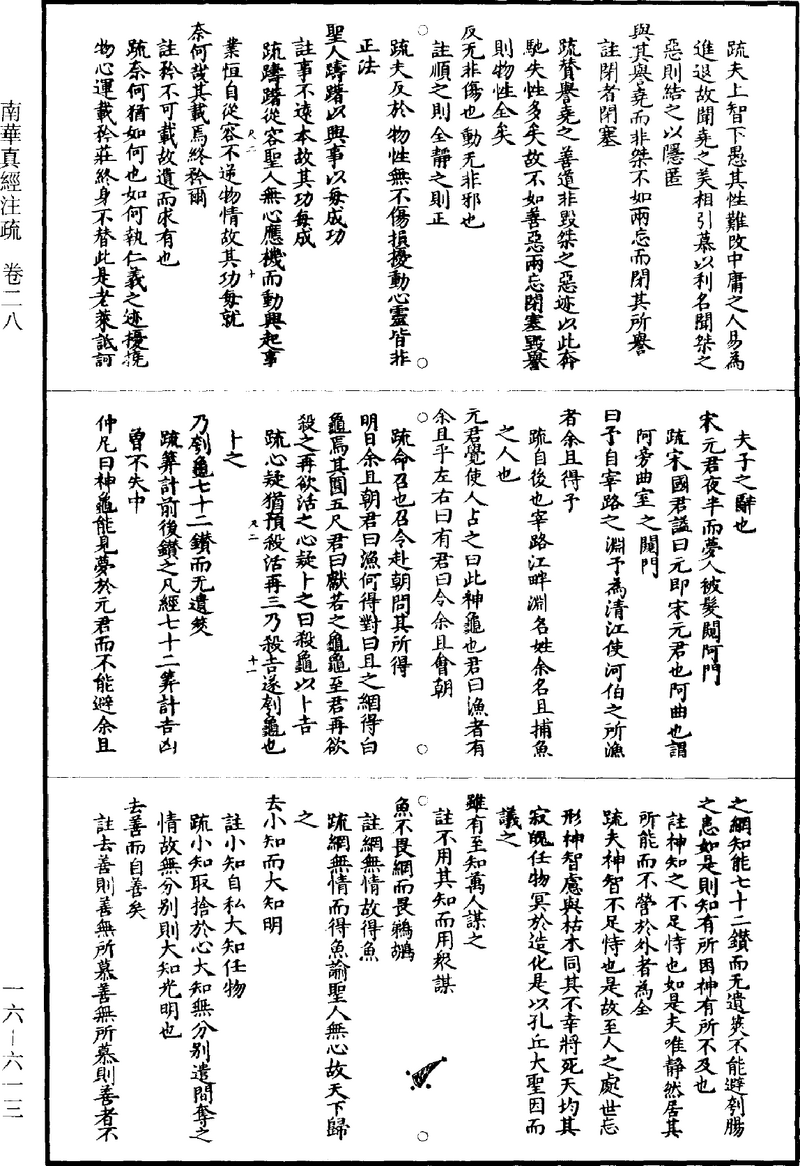 南華真經注疏　卷二八
疏夫上智下愚其性難改中庸之人易為
進退故聞堯之美相引慕以利名聞桀之
惡則結之以隱匿
與其譽堯而非桀不如兩忘而閉其所譽
註閉者閉塞
疏贊譽堯之善道非毀桀之惡迹以此奔
馳失性多矣故不如善惡兩忘閉塞毀譽
則物性全矣
反无非傷也動无非邪也
註順之則全靜之則正
疏夫反於物性無不傷損擾動心靈皆非
正法
聖人躊躇以興事以每成功
註事不遠本故其功每成
疏躊躇從容聖人無心應機而動興起事
業恒自從容不逆物情故其功每就
奈何哉其載焉終矜爾
註矜不可載故遺而求有也
疏奈何猶如何也如何執仁義之迹擾撓
物心運載矜莊終身不替此是老萊詆訶
夫子之辭也
宋元君夜半而夢人被髮闚阿門
疏宋國君謚曰元即宋元君也阿曲也謂
阿旁曲室之闚門
曰予自宰路之淵予為清江使河伯之所漁
者余且得予
疏自從也宰路江畔淵名姓余名且捕魚
之人也
元君覺使人占之曰此神龜也君曰漁者有
余且乎左右曰有君曰令余且會朝
疏命召也召令赴朝問其所得
明日余且朝君曰漁何得對曰且之網得白
龜焉其圓五尺君曰獻若之龜龜至君再欲
殺之再欲活之心疑卜之曰殺龜以卜吉
疏心疑猶預殺活再三乃殺吉遂刳龜也
卜之
乃刳龜七十二鑽而无遺筴
疏筭計前後鑽之凡經七十二筭計吉凶
曾不失中
仲尼曰神龜能見夢於元君而不能避余且
之網知能七十二鑽而无遺筴不能避刳腸
之患如是則知有所困神有所不及也
註神知之不足恃也如是夫唯靜然居其
所能而不營於外者為全
疏夫神智不足恃也是故至人之處世忘
形神智慮與枯木同其不幸將死天均其
寂魄任物冥於造化是以孔丘大聖因而
議之
雖有至知萬人謀之
註不用其知而用衆謀
魚不畏網而畏鵜鶘
註網無情故得魚
疏網無情而得魚諭聖人無心故天下歸
之
去小知而大知明
註小知自私大知任物
疏小知取捨於心大知無分別遣問奪之
情故無分別則大知光明也
去善而自善矣
註去善則善無所慕善無所慕則善者不
一六—六一三